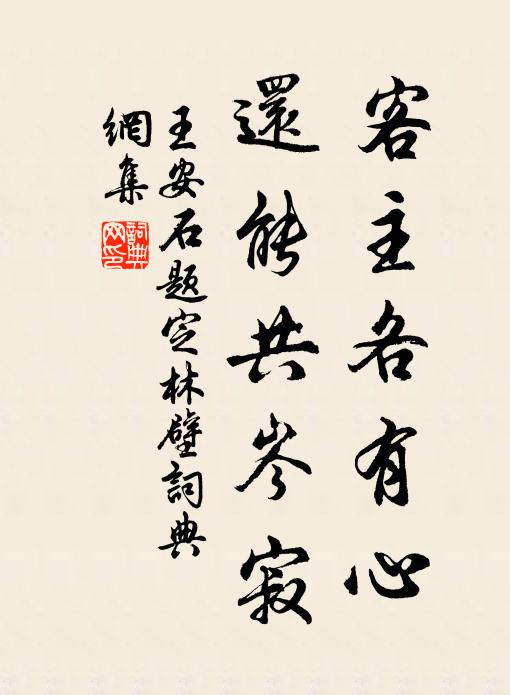 客主各有心
還能共岑寂
王安石题定林壁詞典
網集
詞典
网印